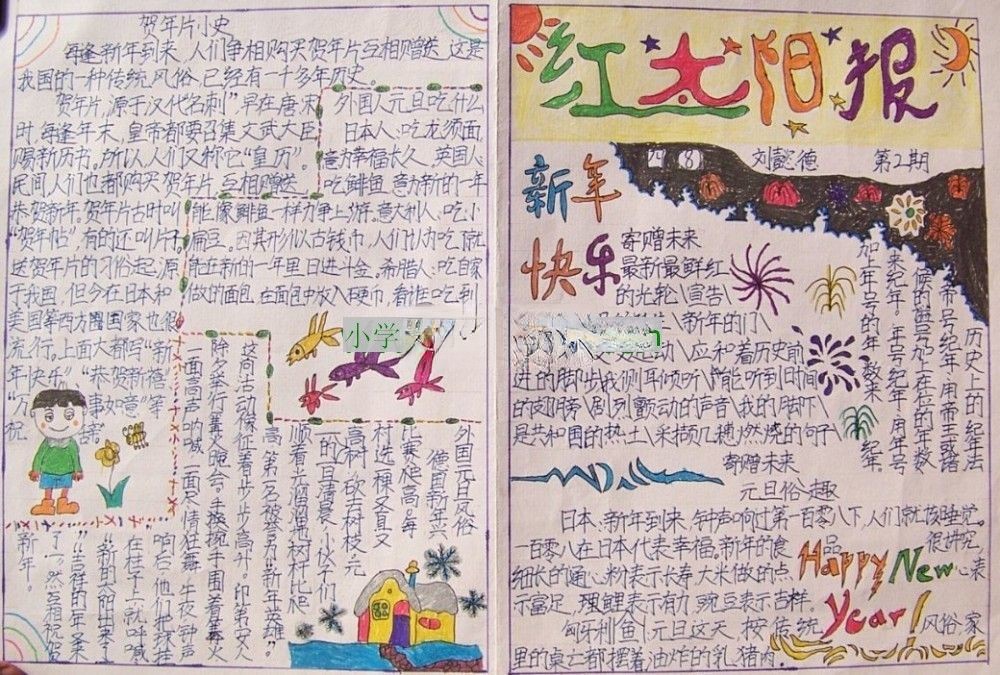 贺年片小史
每逢新年到来,人们争相购买贺年片互相赠送,这是
我国的一种传统风俗,已经有一千多年历史。
贺年片,源于汉代名刺"早在唐宋
时,每逢年末,皇帝都要召集文武大臣
赐新历书。所以人们又称它"皇历"。
民间人们也都购买贺年片,互相赠送,
恭贺新年。贺年片古时叫
"贺年帖",有的还叫片子。
送贺年片的习俗起源
于我国,但今在日本和
美国等西方国家也很
流行。上面大都写"新
年快乐""恭贺新禧"
"万事如意"等
祝
外国人元旦吃什么
日本人:吃龙须面,
意为幸福长久。英国人:
吃鲜鱼,意为新的一年
能像鲜鱼一样力争上游。意大利人:吃小
扁豆。因其形似古钱币,人们认为吃
能在新的一年里日进斗金。希腊人:吃自家
做的面包,在面包中放入硬币,看谁吃到
小学
外国元旦风俗
德国新年兴
比赛爬高。每
村选一棵又直又
高树,砍去树枝,元
旦清晨,小伙子们
顺着光溜溜树杆比爬
高,第一名被誉为"新年英雄"
这向活动像征着步步高升。印第安人
除夕举行篝火晚会。手挽手围着篝火
一面高声呐喊,一面尽情狂舞。午夜钟声
响后,他们把
在柱子上就呼喊
"新的太阳出来
了""吉祥的一年来
了"。然互相祝贺
新年。
红太阳报
刘懿德
第2期
新年
快乐
寄赠未来
最新最鲜红
的光轮\宣告\
\新年的门\
\应和着历史前
进的脚步我侧耳倾听\
剧烈颤动的声音\我的脚下\
是共和国的热土\采撷几穗燃烧的句子\
寄赠未来
历史上的纪年法
帝号纪年:用帝王或诸
侯的谥号加上在位的年数
来纪年。年号纪年:用年号
加上年号的年数来
纪年
元旦俗趣
日本:新年到来,钟声响过第一百零八下,人们就该睡觉。
一百零八在日本代表幸福。新年的食品很讲究,
细长的通心粉表示长寿,大米做的点心表
示富足,理鲤表示有力,豌豆表示吉祥。
Happy New
Year!
匈牙利鱼\元旦这天,按传统风俗,家
里的桌上都摆着油炸的乳猪肉。